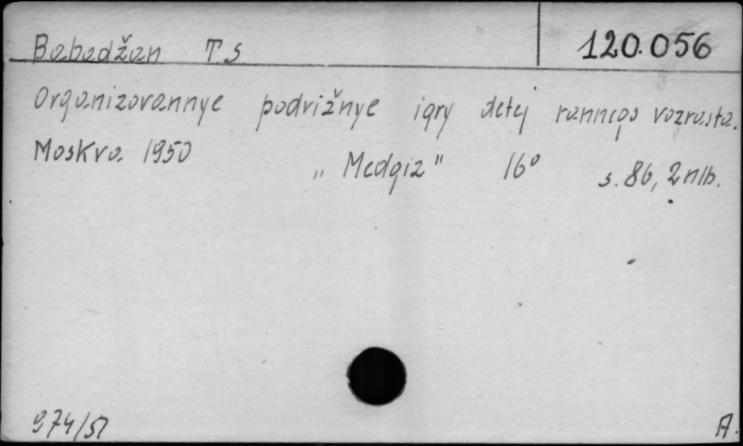 Babadžan T S 120.056
Organizovannye podvižnye igry detej rannego vozrasta.
Moskva 1950 „Medgiz" 16° s. 86, 2 nlb.
974/51 A.